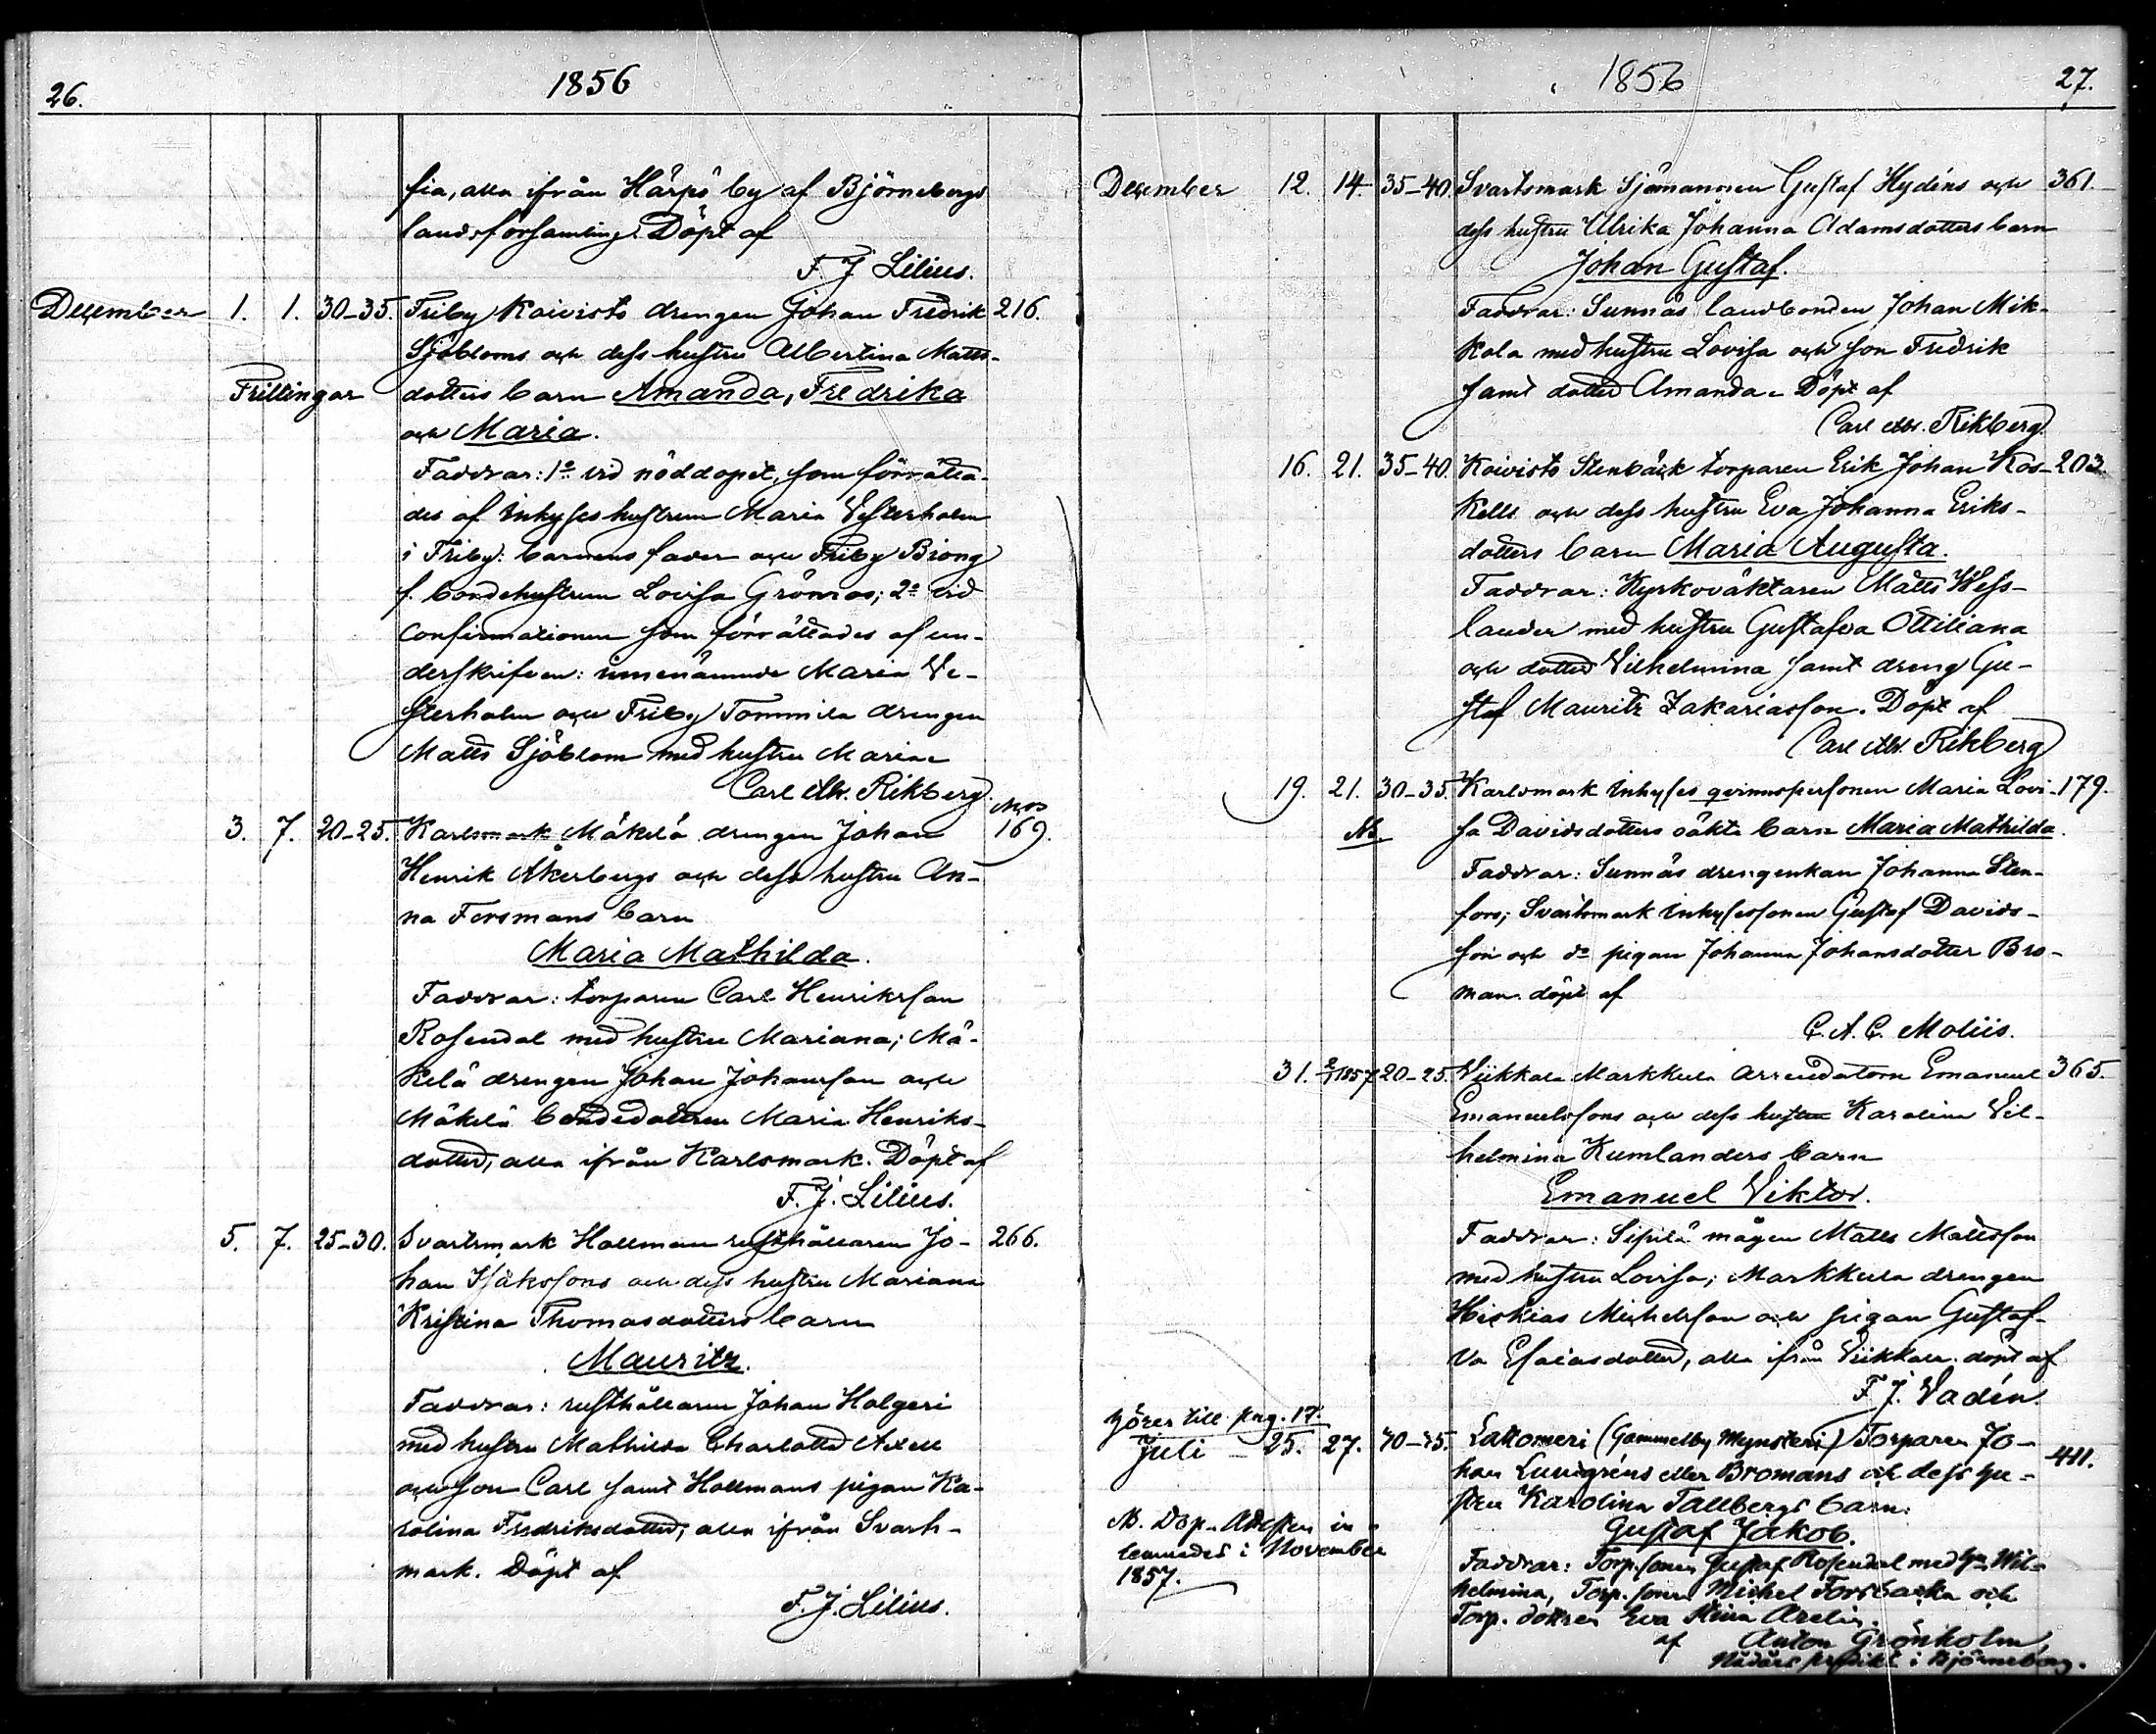 26.
1856
fia, alla ifrån Härpö by af Björneborgs
landsförsamling. Döpt af
F. J. Lilius.
December 1. 1. 30–35. Friby Koivisto drengen Johan Fredrik 216.
Sjöbloms och dess hustru Albertina Matts-
Trillingar dotters barn Amanda, Fredrika
och Maria.
Faddrar: 1o vid nöddopet, som förrätta-
des af Inhyses hustrun Maria Vesterholm
i Friby: barnens fader och Friby Biong
f. bondehustrun Lovisa Grönroos; 2o vid
confirmationen som förrättades af un-
derskrifven: ofvannämnde Maria Ve-
sterholm och Friby Tommila drengen
Matts Sjöblom med hustru Maria
Carl Mr. Rikberg.
3. 7. 20–25. Karlsmark Mäkelä drengen Johan 169.
Henrik Åkerbergs och dess hustru An-
na Forsmans barn
Maria Mathilda.
Faddrar: torparen Carl Henriksson
Rosendal med hustru Mariana; Mä-
kelä drengen Johan Johansson och
Mäkelä bondedottren Maria Henriks-
dotter, alla ifrån Karlsmark. Döpt af
F. J. Lilius.
5. 7. 25–30. Svartsmark Hallman rusthållaren Jo- 266.
han Isakssons och dess hustru Mariana
Kristina Thomasdotters barn
Mauritz.
Faddrar: rusthållaren Johan Holgeri
med hustru Mathilda Charlotta Axell
och son Carl samt Hollmans pigan Ka-
rolina Fredriksdotter, alla ifrån Svarts-
mark. Döpt af
F. J. Lilius.
1856
27.
December 12. 14. 35–40. Svartsmark Sjömannen Gustaf Hydéns och 361.
dess hustru Ulrika Johanna Adamsdotters barn
Johan Gustaf.
Faddrar: Sunnäs landbonden Johan Mik-
kola med hustru Lovisa och son Fredrik
samt dotter Amanda. Döpt af
Carl Mr. Rikberg.
16. 21. 35–40. Koivisto Stenbäck torparen Erik Johan Kos- 203.
kells och dess hustru Eva Johanna Eriks-
dotters barn Maria Augusta.
Faddrar: Kyrkoväktaren Matts Wess-
lander med hustru Gustafva Ottiliana
och dotter Vilhelmina samt dreng Gu-
staf Mauritz Zakariasson. Döpt af
Carl Mr. Rikberg
19. 21. 30–35. Karlsmark Inhyses qvinnspersonen Maria Lovi- 179.
sa Davidsdotters oäkta barn Maria Mathilda.
Faddrar: Sunnäs drengenkan Johanna Sten-
fors; Svartsmark Inhysessonen Gustaf Davids-
son och do pigan Johanna Johansdotter Bro-
man. döpt af
C. A. C. Moliis.
31. 2/1 1857 20–25. Viikkala Markkula Arrendatorn Emanuel 365.
Emanuelssons och dess hustru Karolina Vil-
helmina Kumlanders barn
Emanuel Viktor.
Faddrar: Sipilä mågen Matts Mattsson
med hustru Lovisa; Markkula drengen
Hiskias Michelsson och pigan Gustaf-
va Esaiasdotter, alla ifrån Viikkala. döpt af
F. J. Vadén.
hörer till pag. 17.
Juli 25. 27. 40–45. Lattomeri (Gammelby Mynsteri) Torparen Jo- 411.
han Lundgréns eller Bromans och dess hu-
stru Karolina Tallbergs barn:
Gustaf Jakob.
NB. Dop-Attesten in-
lemnades i November
1857.
Faddrar: Torp. sonen Gustaf Rosendal med hu Wil-
helmina, Torp. sonen Michel Forsbacka och
Torp. dottren Eva Stina Axelin.
af Anton Grönholm,
Nådårs predikt i Björneborg.